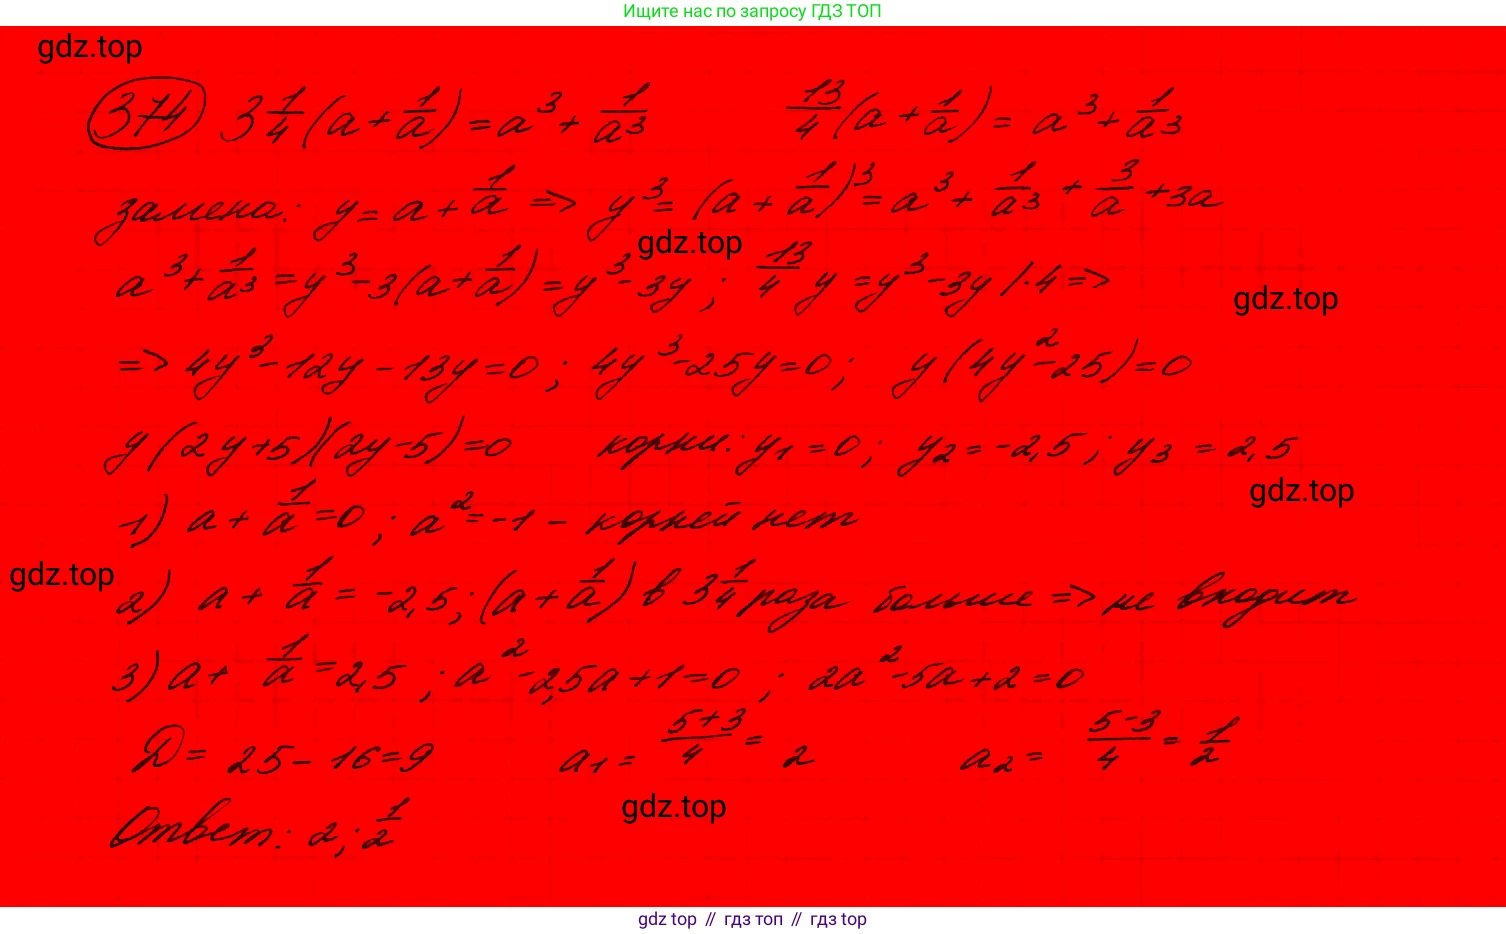 Ищите нас по запросу ГДЗ ТОП
gdz.top
374 3 1/4 (a + 1/a) = a³ + 1/a³ 13/4 (a + 1/a) = a³ + 1/a³
замена: y = a + 1/a => y³ = (a + 1/a)³ = a³ + 1/a³ + 3/a + 3a
gdz.top
a³ + 1/a³ = y³ - 3(a + 1/a) = y³ - 3y ; 13/4 y = y³ - 3y /·4 =>
gdz.top
=> 4y³ - 12y - 13y = 0 ; 4y³ - 25y = 0 ; y (4y² - 25) = 0
y (2y + 5)(2y - 5) = 0 корни: y₁ = 0 ; y₂ = -2,5 ; y₃ = 2,5
gdz.top
1) a + 1/a = 0 ; a² = -1 - корней нет
gdz.top
2) a + 1/a = -2,5 ; (a + 1/a) в 3 1/4 раза больше => не входит
3) a + 1/a = 2,5 ; a² - 2,5a + 1 = 0 ; 2a² - 5a + 2 = 0
D = 25 - 16 = 9 a₁ = (5+3)/4 = 2 a₂ = (5-3)/4 = 1/2
gdz.top
Ответ: 2 ; 1/2
gdz top // гдз топ // гдз top